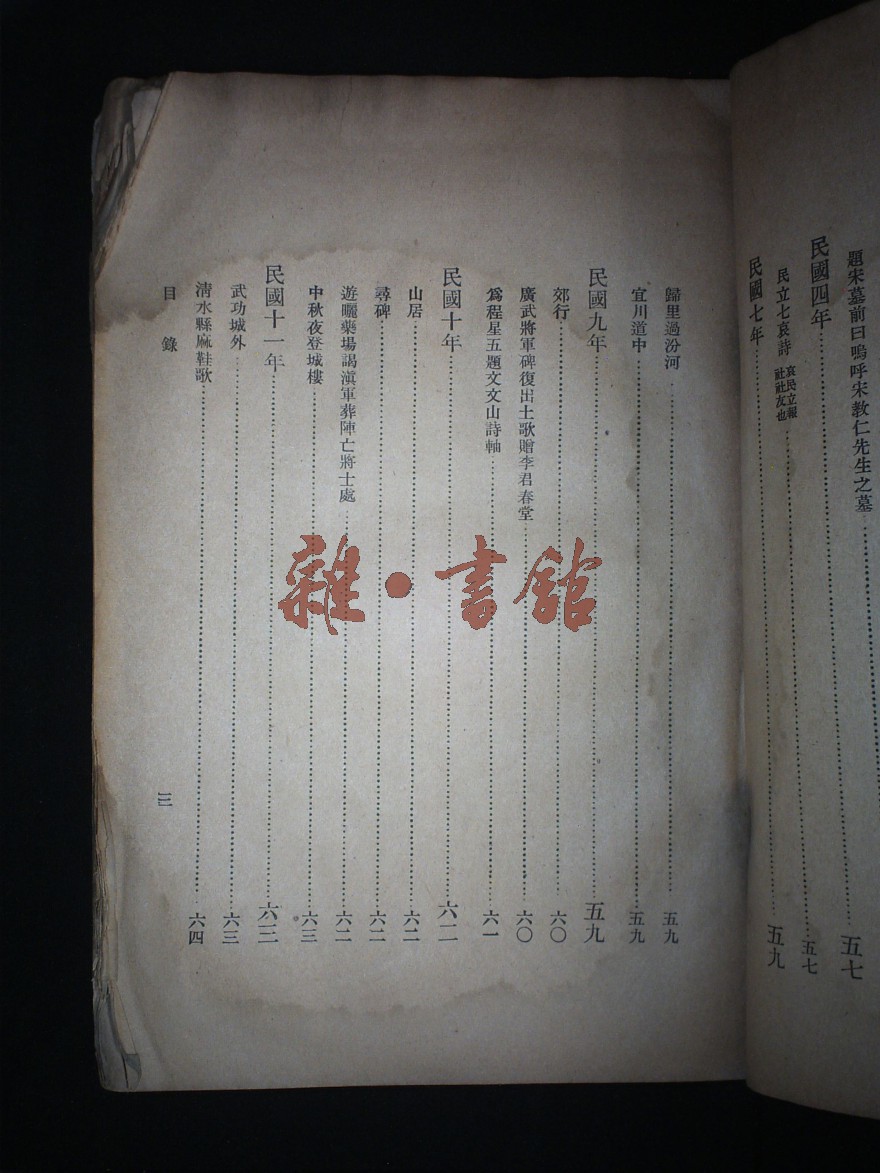 題宋墓前曰嗚呼宋教仁先生之墓……五七
民國四年……五七
民立七哀詩 哀民立報社社友也……五七
民國七年……五九
歸里過汾河……五九
宜川道中……五九
民國九年……五九
郊行……六〇
廣武將軍碑復出土歌贈李君春堂……六〇
爲程星五題文文山詩軸……六一
民國十年……六二
山居……六二
尋碑……六二
遊曬藥場謁滇軍葬陣亡將士處……六二
中秋夜登城樓……六三
民國十一年……六三
武功城外……六三
淸水縣麻鞋歌……六四
目錄
三
雜·書館